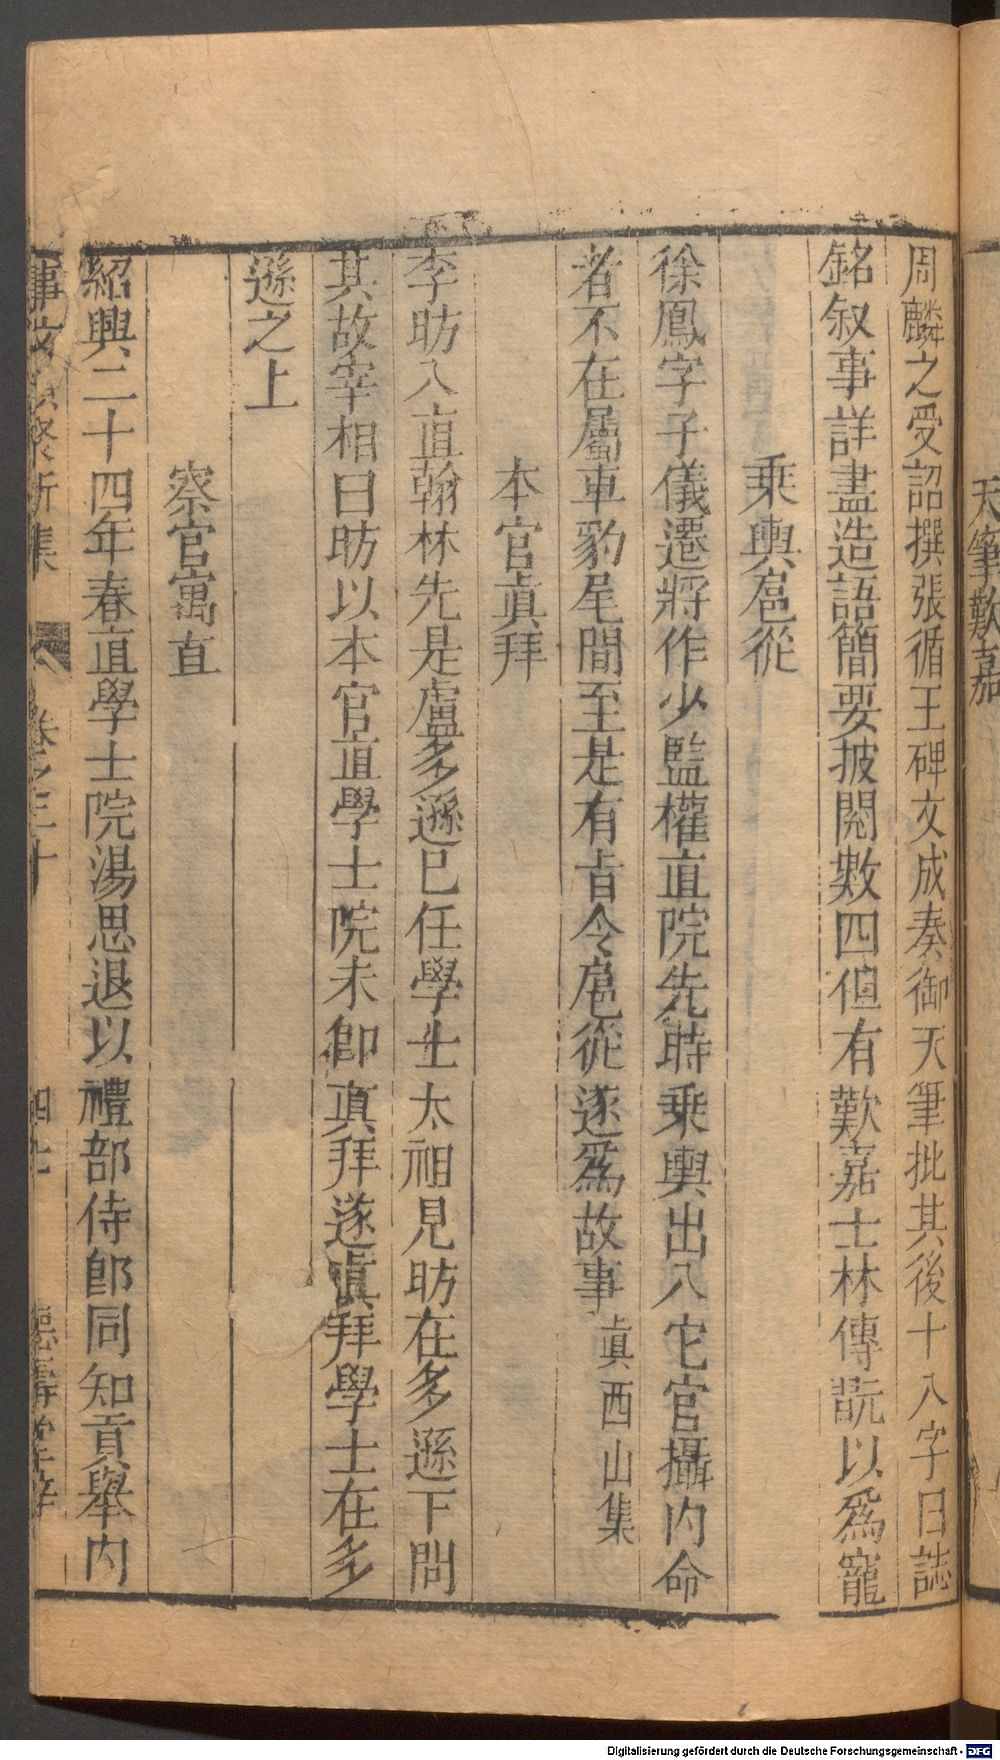 天筆歎嘉
周麟之受詔撰張循王碑文成奏御天筆批其後十八字曰誌
銘叙事詳盡造語簡要披閱數四但有歎嘉士林傳翫以爲寵
乘輿扈從
徐鳳字子儀遷將作少監權直院先時乘輿出入它官攝內命
者不在屬車豹尾間至是有旨令扈從遂爲故事眞西山集
本官眞拜
李昉入直翰林先是盧多遜已任學士太祖見昉在多遜下問
其故宰相曰昉以本官直學士院未卽眞拜遂眞拜學士在多
遜之上
察官寓直
紹興二十四年春直學士院湯思退以禮部侍郎同知貢舉內
事文類聚新集 卷之三十 四七 德壽堂梓
Digitalisierung gefördert durch die Deutsche Forschungsgemeinschaft - DFG